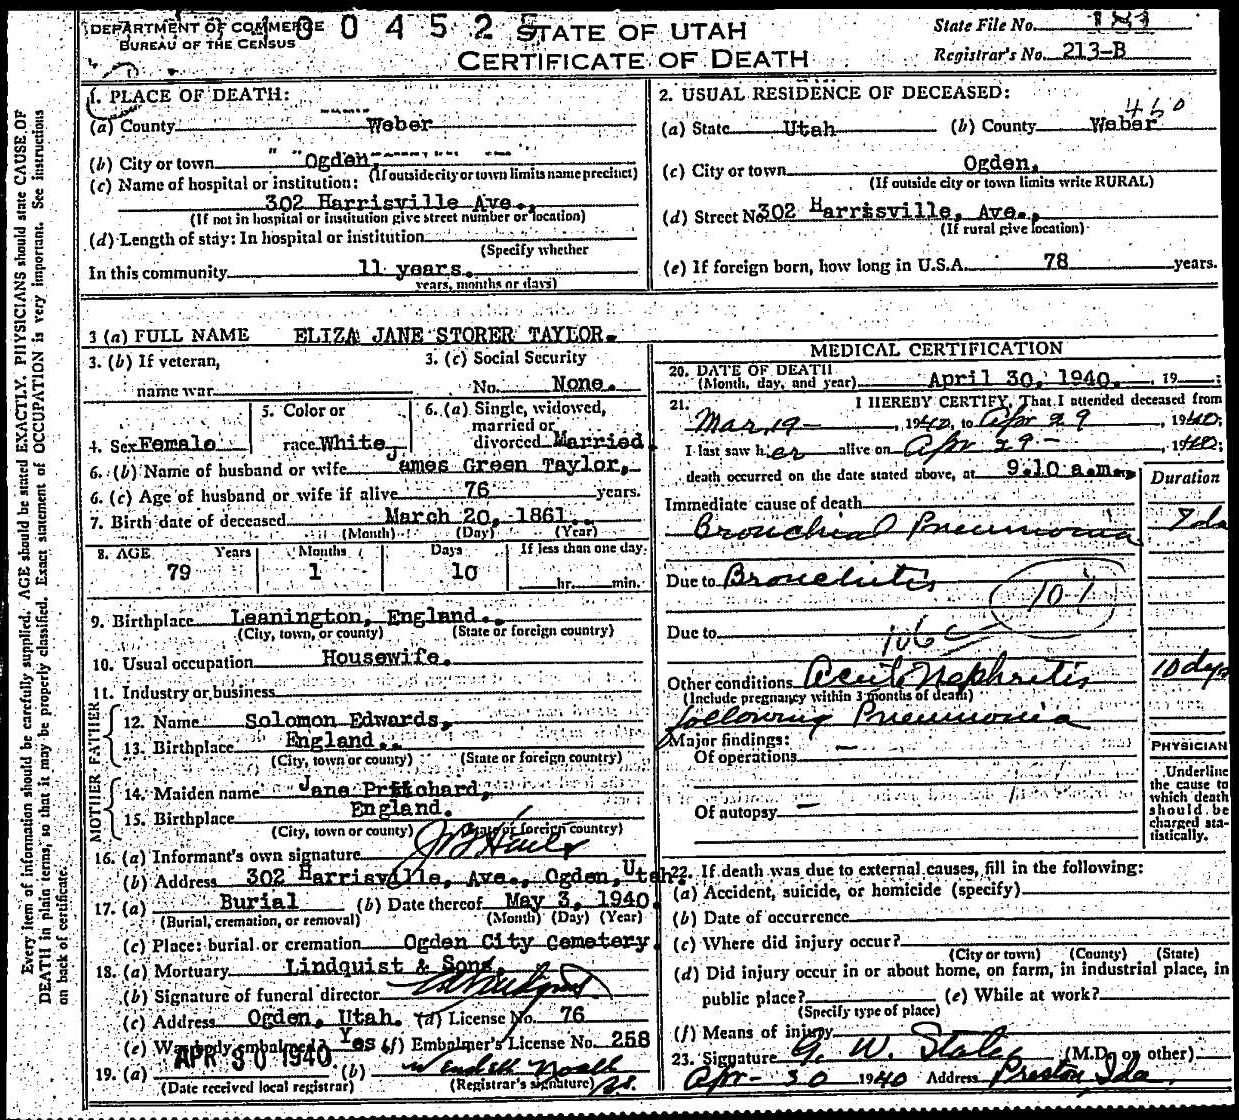 DEPARTMENT OF COMMERCE
BUREAU OF THE CENSUS
STATE OF UTAH
CERTIFICATE OF DEATH
State File No. 181
Registrar's No. 213-B
1. PLACE OF DEATH:
(a) County Weber
(b) City or town Ogden,
(If outside city or town limits name precinct)
(c) Name of hospital or institution:
302 Harrisville Ave.,
(If not in hospital or institution give street number or location)
(d) Length of stay: In hospital or institution
(Specify whether
In this community 11 years.
years, months or days)
2. USUAL RESIDENCE OF DECEASED:
460
(a) State Utah (b) County Weber
(c) City or town Ogden,
(If outside city or town limits write RURAL)
(d) Street No 302 Harrisville, Ave.,
(If rural give location)
(e) If foreign born, how long in U.S.A. 78 years.
3 (a) FULL NAME ELIZA JANE STORER TAYLOR.
3. (b) If veteran,
name war
3. (c) Social Security
No. None.
4. Sex Female
5. Color or
race White
6. (a) Single, widowed,
married or
divorced Married.
6. (b) Name of husband or wife James Green Taylor,
6. (c) Age of husband or wife if alive 76 years.
7. Birth date of deceased March 20, 1861.
(Month) (Day) (Year)
8. AGE Years Months Days If less than one day
79 1 10 hr. min.
9. Birthplace Leanington, England.
(City, town, or county) (State or foreign country)
10. Usual occupation Housewife.
11. Industry or business
FATHER
12. Name Solomon Edwards,
13. Birthplace England.
(City, town or county) (State or foreign country)
MOTHER
14. Maiden name Jane Pritchard,
15. Birthplace England.
(City, town or county) (State or foreign country)
16. (a) Informant's own signature
(b) Address 302 Harrisville, Ave., Ogden, Utah.
17. (a) Burial (b) Date thereof May 3, 1940.
(Burial, cremation, or removal) (Month) (Day) (Year)
(c) Place: burial or cremation Ogden City Cemetery.
18. (a) Mortuary Lindquist & Sons,
(b) Signature of funeral director
(c) Address Ogden, Utah. (d) License No. 76
(e) Was body embalmed? Yes (f) Embalmer's License No. 258
APR 30 1940
19. (a) (b)
(Date received local registrar) (Registrar's signature)
MEDICAL CERTIFICATION
20. DATE OF DEATH
(Month, day, and year) April 30, 1940. , 19 ;
21. I HEREBY CERTIFY, That I attended deceased from
Mar 19 - , 1940, to Apr 29 , 1940;
I last saw her alive on Apr 29 - , 1940;
death occurred on the date stated above, at 9:10 a.m.
Duration
Immediate cause of death
Bronchial Pneumonia 7 da
Due to Bronchitis
107
Due to 106 c
Other conditions Acute Nephritis 10 dys
(Include pregnancy within 3 months of death)
following Pneumonia
Major findings:
Of operations —
Of autopsy —
PHYSICIAN
Underline
the cause to
which death
should be
charged sta-
tistically.
22. If death was due to external causes, fill in the following:
(a) Accident, suicide, or homicide (specify)
(b) Date of occurrence
(c) Where did injury occur?
(City or town) (County) (State)
(d) Did injury occur in or about home, on farm, in industrial place, in
public place? (e) While at work?
(Specify type of place)
(f) Means of injury
23. Signature G. W. States (M.D. or other)
Apr - 30 1940 Address Preston, Ida.
Every item of information should be carefully supplied. AGE should be stated EXACTLY. PHYSICIANS should state CAUSE OF
DEATH in plain terms, so that it may be properly classified. Exact statement of OCCUPATION is very important. See instructions
on back of certificate.